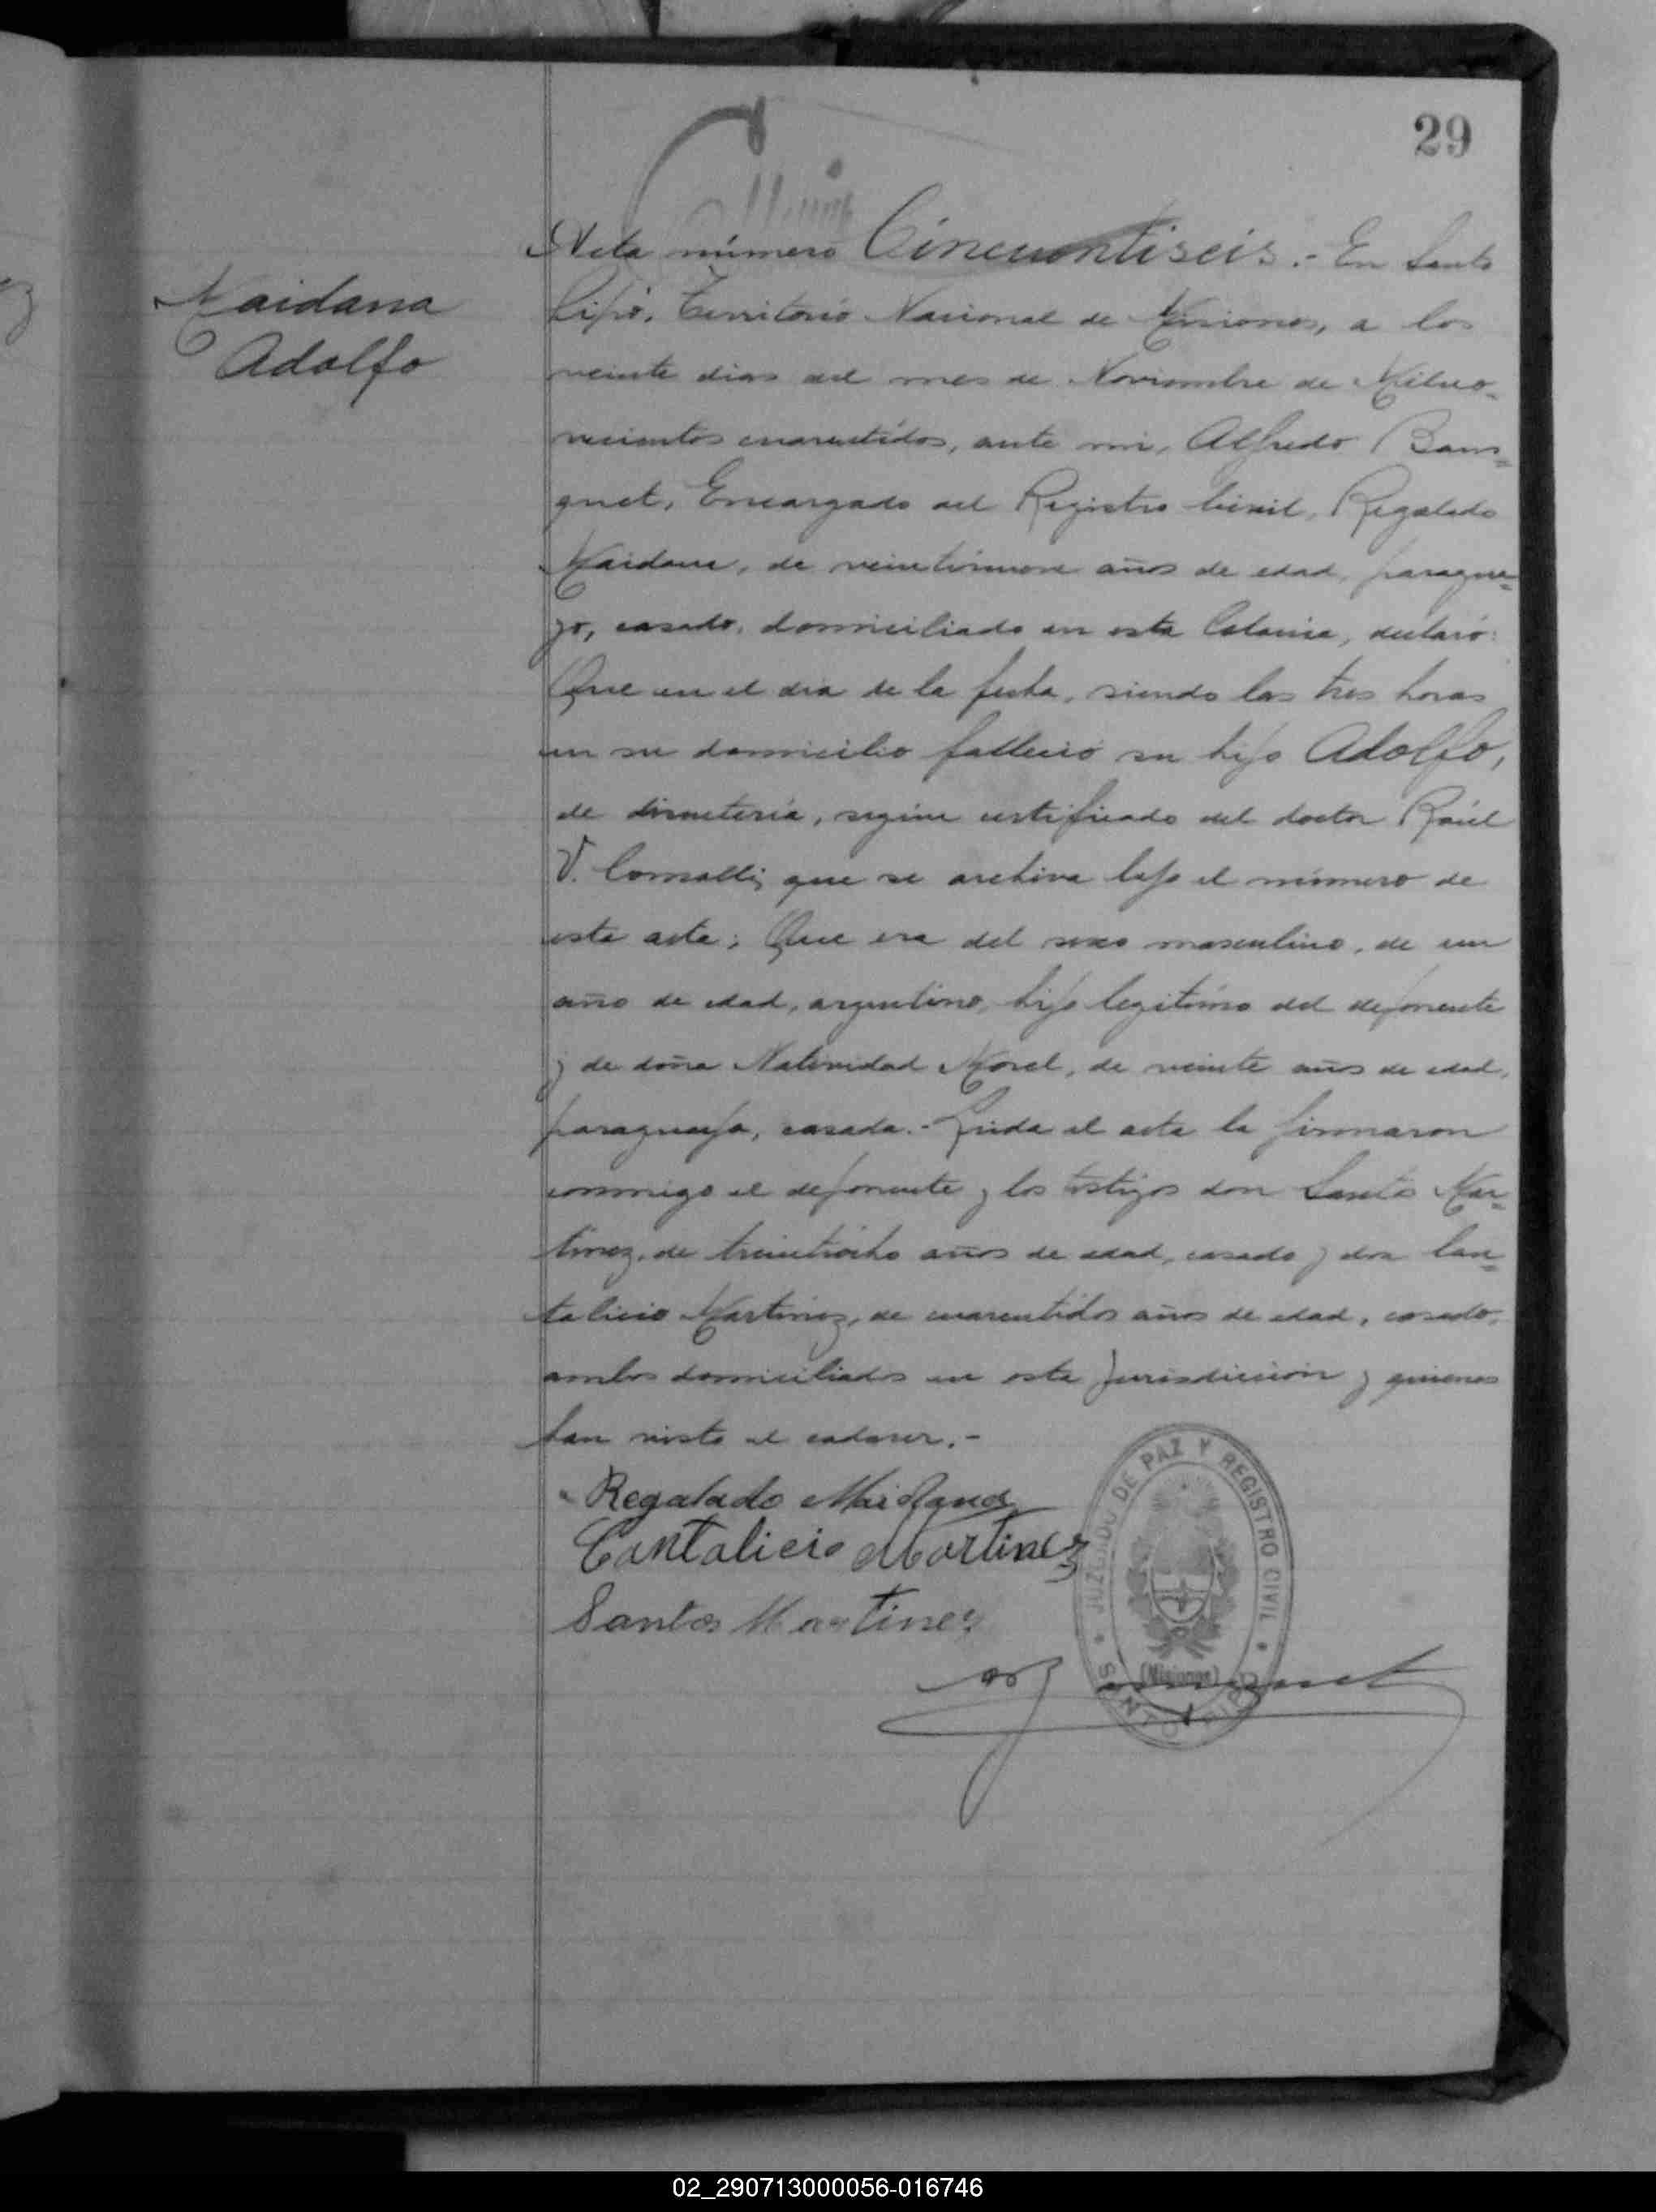 29
Maidana
Adolfo
Acta número Cincuentiseis.- En Santo
Pipó, Territorio Nacional de Misiones, a los
veinte dias del mes de Noviembre de Milno-
vecientos cuarentidos, ante mi, Alfredo Bous-
quet, Encargado del Registro Civil, Regalado
Maidana, de veintinueve años de edad, paragua-
yo, casado, domiciliado en esta Colonia, declaró:
Que en el dia de la fecha, siendo las tres horas
en su domicilio falleció su hijo Adolfo,
de disenteria, segun certificado del doctor Raúl
V. que se archiva bajo el número de
esta acta; Que era del sexo masculino, de un
año de edad, argentino, hijo legitimo del deponente
y de doña Natividad Morel, de veinte años de edad,
paraguaya, casada.- Leida el acta la firmaron
conmigo el deponente y los testigos don Santos Mar-
tinez, de treintiocho años de edad, casado y don Can-
talicio Martinez, de cuarentidos años de edad, casado,
ambos domiciliados en esta jurisdiccion y quienes
han visto el cadaver.-
Regalado Maidana
Cantalicio Martinez
Santos Martinez
JUZGADO DE PAZ Y REGISTRO CIVIL
(Misiones)
SANTO PIPO
02_290713000056-016746